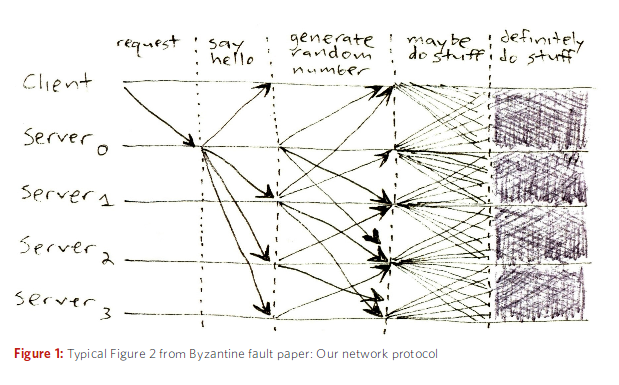 request
say
hello
generate
random
number
maybe
do stuff
definitely
do stuff
Client
Server 0
Server 1
Server 2
Server 3
Figure 1: Typical Figure 2 from Byzantine fault paper: Our network protocol